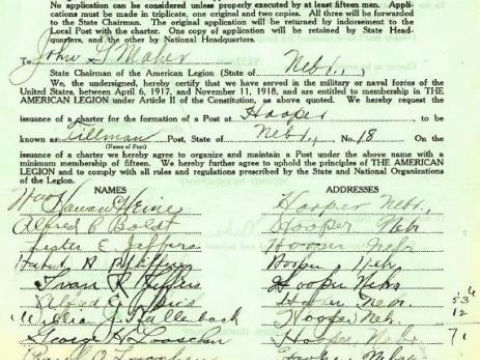 No application can be considered unless properly executed by at least fifteen men. Applications
must be made in triplicate, one original and two copies. All three will be forwarded
to the State Chairman. The original application will be returned by indorsement to the
Local Post with the charter. One copy of application will be retained by State Head-
quarters, and the other by National Headquarters.
To John G Maher Nebr.
State Chairman of the American Legion (State of
We, the undersigned, hereby certify that we have served in the military or naval forces of the
United States, between April 6, 1917, and November 11, 1918, and are entitled to membership in THE
AMERICAN LEGION under Article II of the Constitution, as above quoted. We hereby request the
issuance of a charter for the formation of a Post at Hooper to be
known as Tillman Post, State of Nebr., No. 18 On the
(Name of Post)
issuance of a charter we hereby agree to organize and maintain a Post under the above name with a
minimum membership of fifteen. We hereby further agree to uphold the principles of THE AMERICAN
LEGION and to comply with all rules and regulations prescribed by the State and National Organizations
of the Legion.
NAMES ADDRESSES
Heine Hooper Nebr.
Alfred C Boldt Hooper Nebr
Lester E. Jeffers Hooper Nebr
Hooper Nebr
Ivan R Hooper Nebr
Nebr.
William J. Kallenbach Hooper Neb. 12
George H Looschen Hooper, Nebr 71